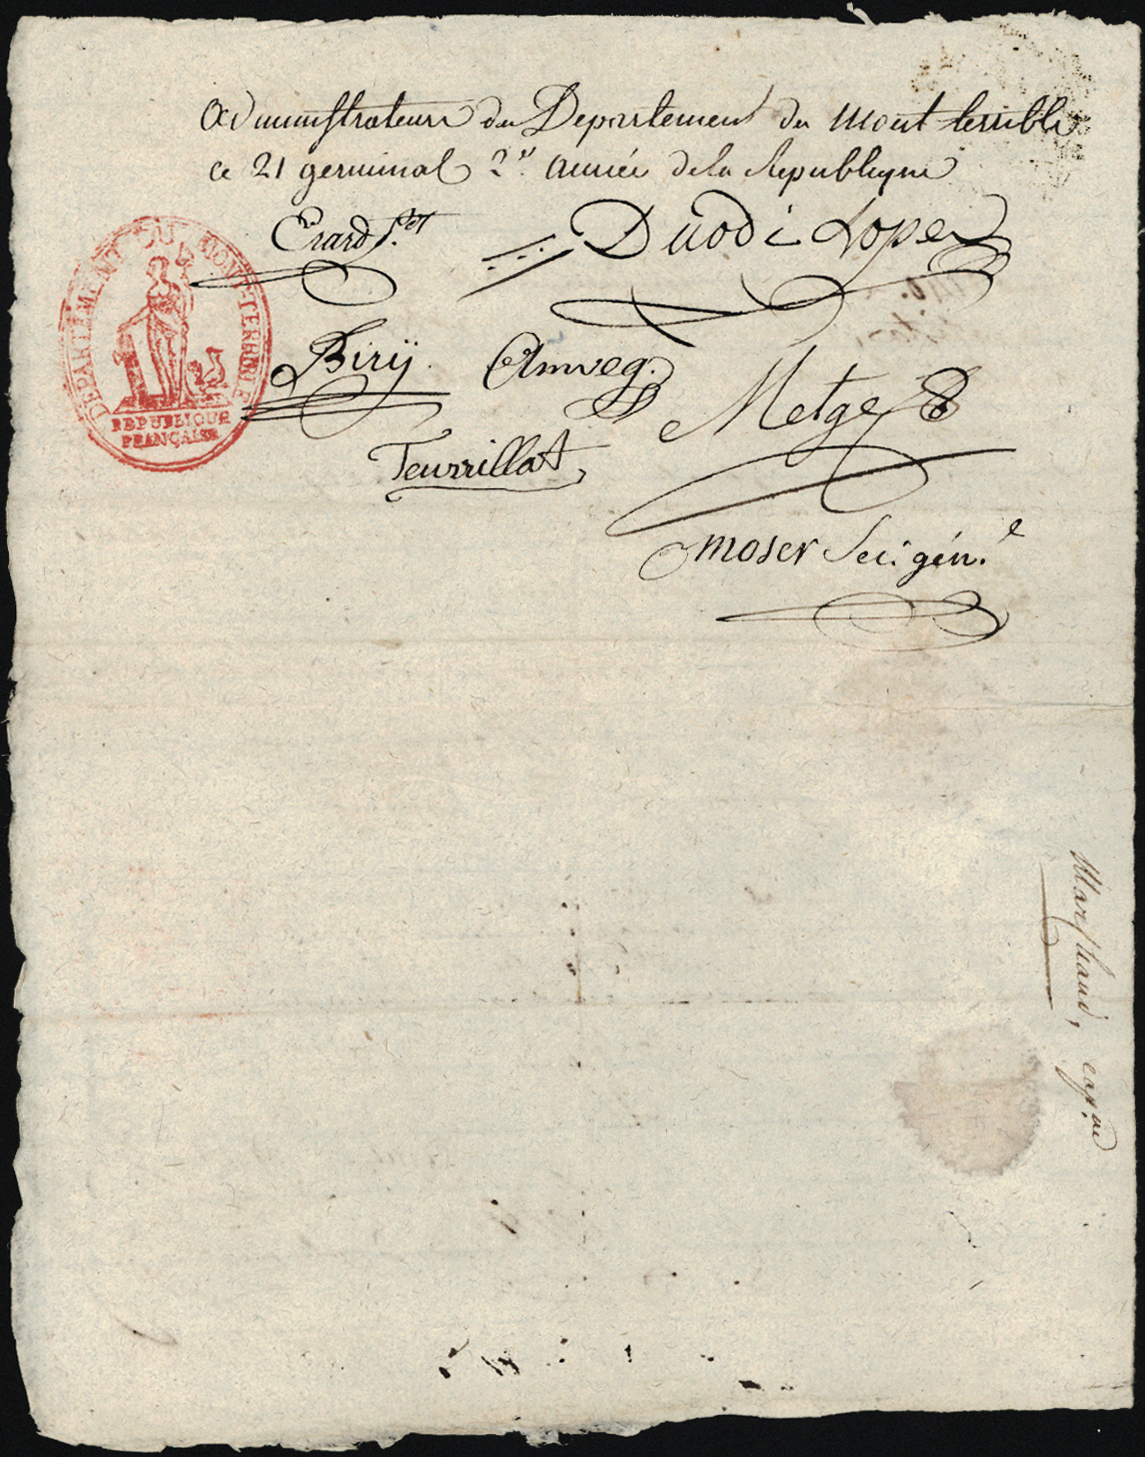 administrateurs du Departement du mont terrible
ce 21 germinal 2.e année de la Republique
Erard
DÉPARTEMENT DU MONT-TERRIBLE
RÉPUBLIQUE
FRANÇAISE
Duodi Loper
Birÿ.
Amweg.
Metge
Teurrillat
moser Sec. gén.l
Marchand, cap.ne